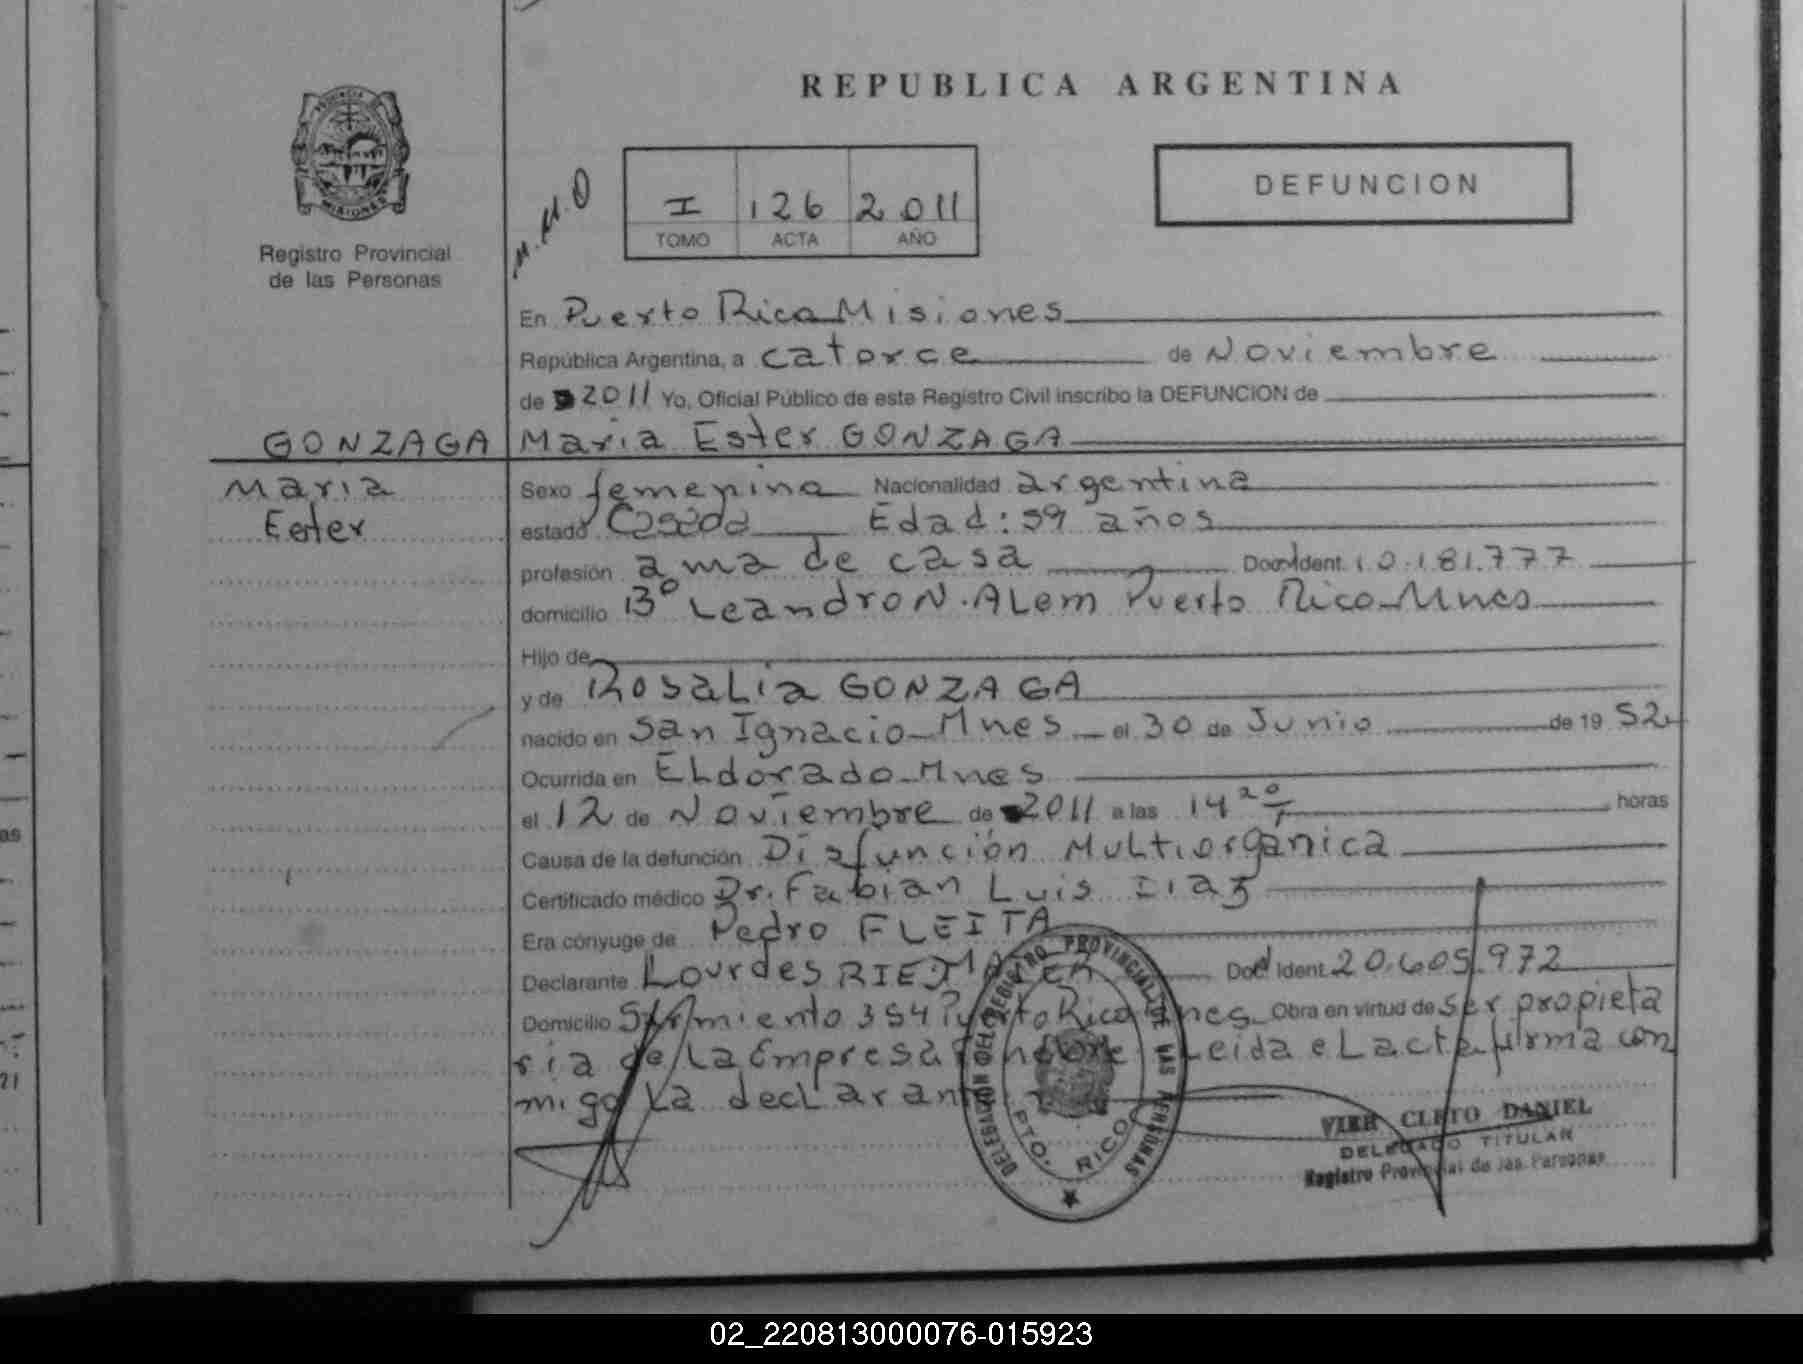 REPUBLICA ARGENTINA
PROVINCIA
MISIONES
Registro Provincial
de las Personas
M.M.O
I 126 2011
TOMO ACTA AÑO
DEFUNCION
En Puerto Rico Misiones
República Argentina, a catorce de Noviembre
de 2011 Yo, Oficial Público de este Registro Civil inscribo la DEFUNCION de
GONZAGA Maria Ester GONZAGA
Maria
Ester
Sexo femenina Nacionalidad argentina
estado Casada Edad: 59 años
profesión ama de casa Doc. Ident. 10.181.777
domicilio B° Leandro N. ALem Puerto Rico-Mnes
Hijo de
y de RosaLia GONZAGA
nacido en San Ignacio-Mnes el 30 de Junio de 19 52
Ocurrida en ELdorado-Mnes
el 12 de Noviembre de 2011 a las 14 20 horas
Causa de la defunción Disfunción MuLtiorganica
Certificado médico Dr. Fabian Luis Diaz
Era cónyuge de Pedro FLEITA
Declarante Lourdes Doc. Ident. 20.605.972
Domicilio Sarmiento 354 Puerto Rico Mnes. Obra en virtud de ser propieta
ria de La Empresa Leida eL acta firma con
migo La decLarante
DELEGACION DEL REGISTRO PROVINCIAL DE LAS PERSONAS
PTO. RICO
CLETO DANIEL
DELEGADO TITULAR
Registro Provincial de las Personas
02_220813000076-015923